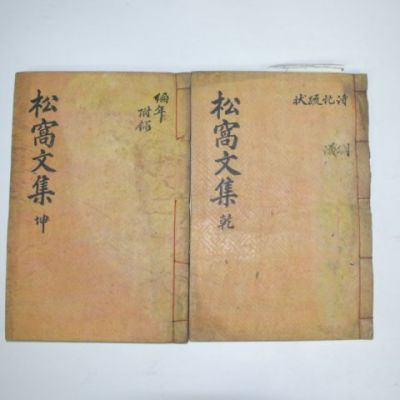 松窩文集
乾
詩記疏狀
松窩文集
坤
編年
附錄